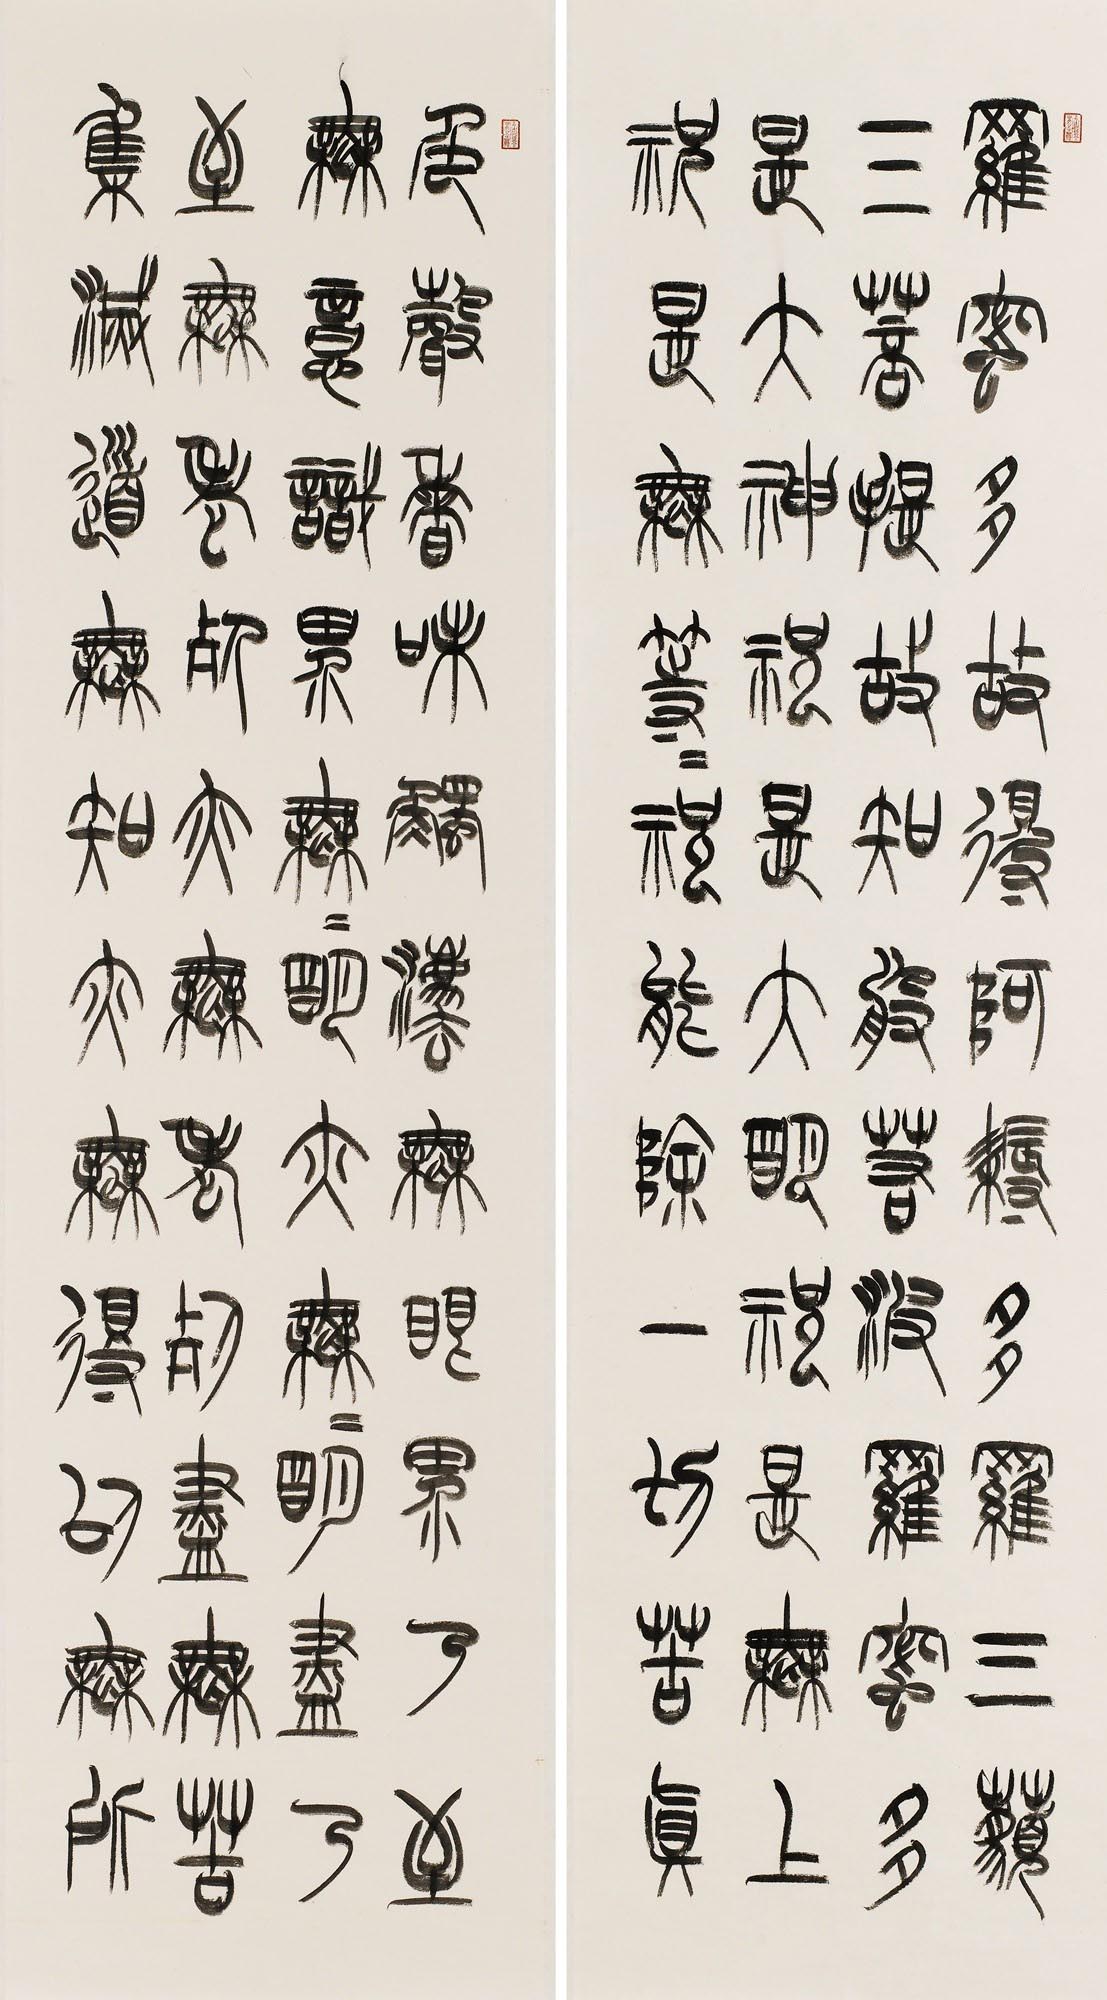 羅蜜多故得阿耨多羅三藐
三菩提故知般若波羅蜜多
是大神祝是大明祝是無上
祝是無等〻祝能除一切苦真
色聲香味觸法無眼界乃至
無意識界無〻明亦無〻明盡乃
至無老死亦無老死盡無苦
集滅道無知亦無得以無所